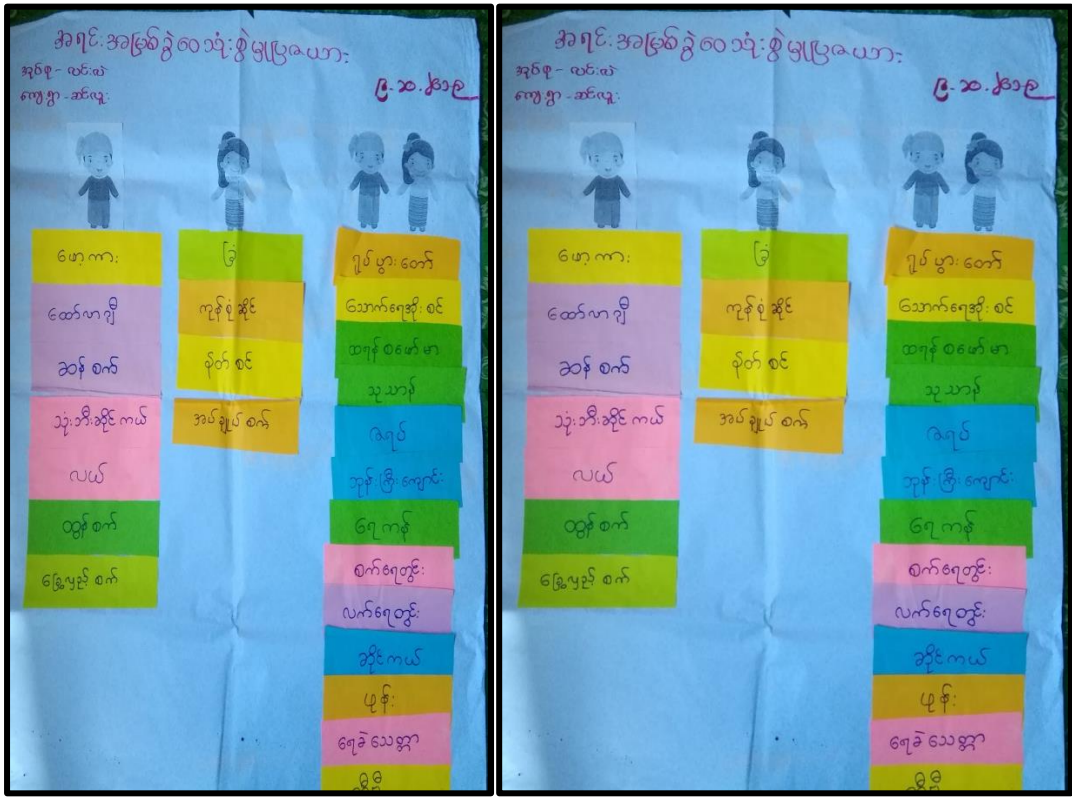 အရင်းအမြစ်ခွဲဝေသုံးစွဲမှုပြဇယား
အုပ်စု - လင်းလဲ
ကျေးရွာ - ဆင်လူး
၉.၁၁.၂၀၁၉
ဖော့ကား
ထော်လာဂျီ
ဆန်စက်
သုံးဘီးဆိုင်ကယ်
လယ်
ထွန်စက်
ခြွေလှည့်စက်
ခြံ
ကုန်စုံဆိုင်
နတ်စင်
အပ်ချုပ်စက်
ရုပ်ပွားတော်
သောက်ရေအိုးစင်
ထရန်စဖော်မာ
သုသာန်
ဇရပ်
ဘုန်းကြီးကျောင်း
ရေကန်
စက်ရေတွင်း
လက်ရေတွင်း
ဆိုင်ကယ်
ဖုန်း
ရေခဲသေတ္တာ
အရင်းအမြစ်ခွဲဝေသုံးစွဲမှုပြဇယား
အုပ်စု - လင်းလဲ
ကျေးရွာ - ဆင်လူး
၉.၁၁.၂၀၁၉
ဖော့ကား
ထော်လာဂျီ
ဆန်စက်
သုံးဘီးဆိုင်ကယ်
လယ်
ထွန်စက်
ခြွေလှည့်စက်
ခြံ
ကုန်စုံဆိုင်
နတ်စင်
အပ်ချုပ်စက်
ရုပ်ပွားတော်
သောက်ရေအိုးစင်
ထရန်စဖော်မာ
သုသာန်
ဇရပ်
ဘုန်းကြီးကျောင်း
ရေကန်
စက်ရေတွင်း
လက်ရေတွင်း
ဆိုင်ကယ်
ဖုန်း
ရေခဲသေတ္တာ